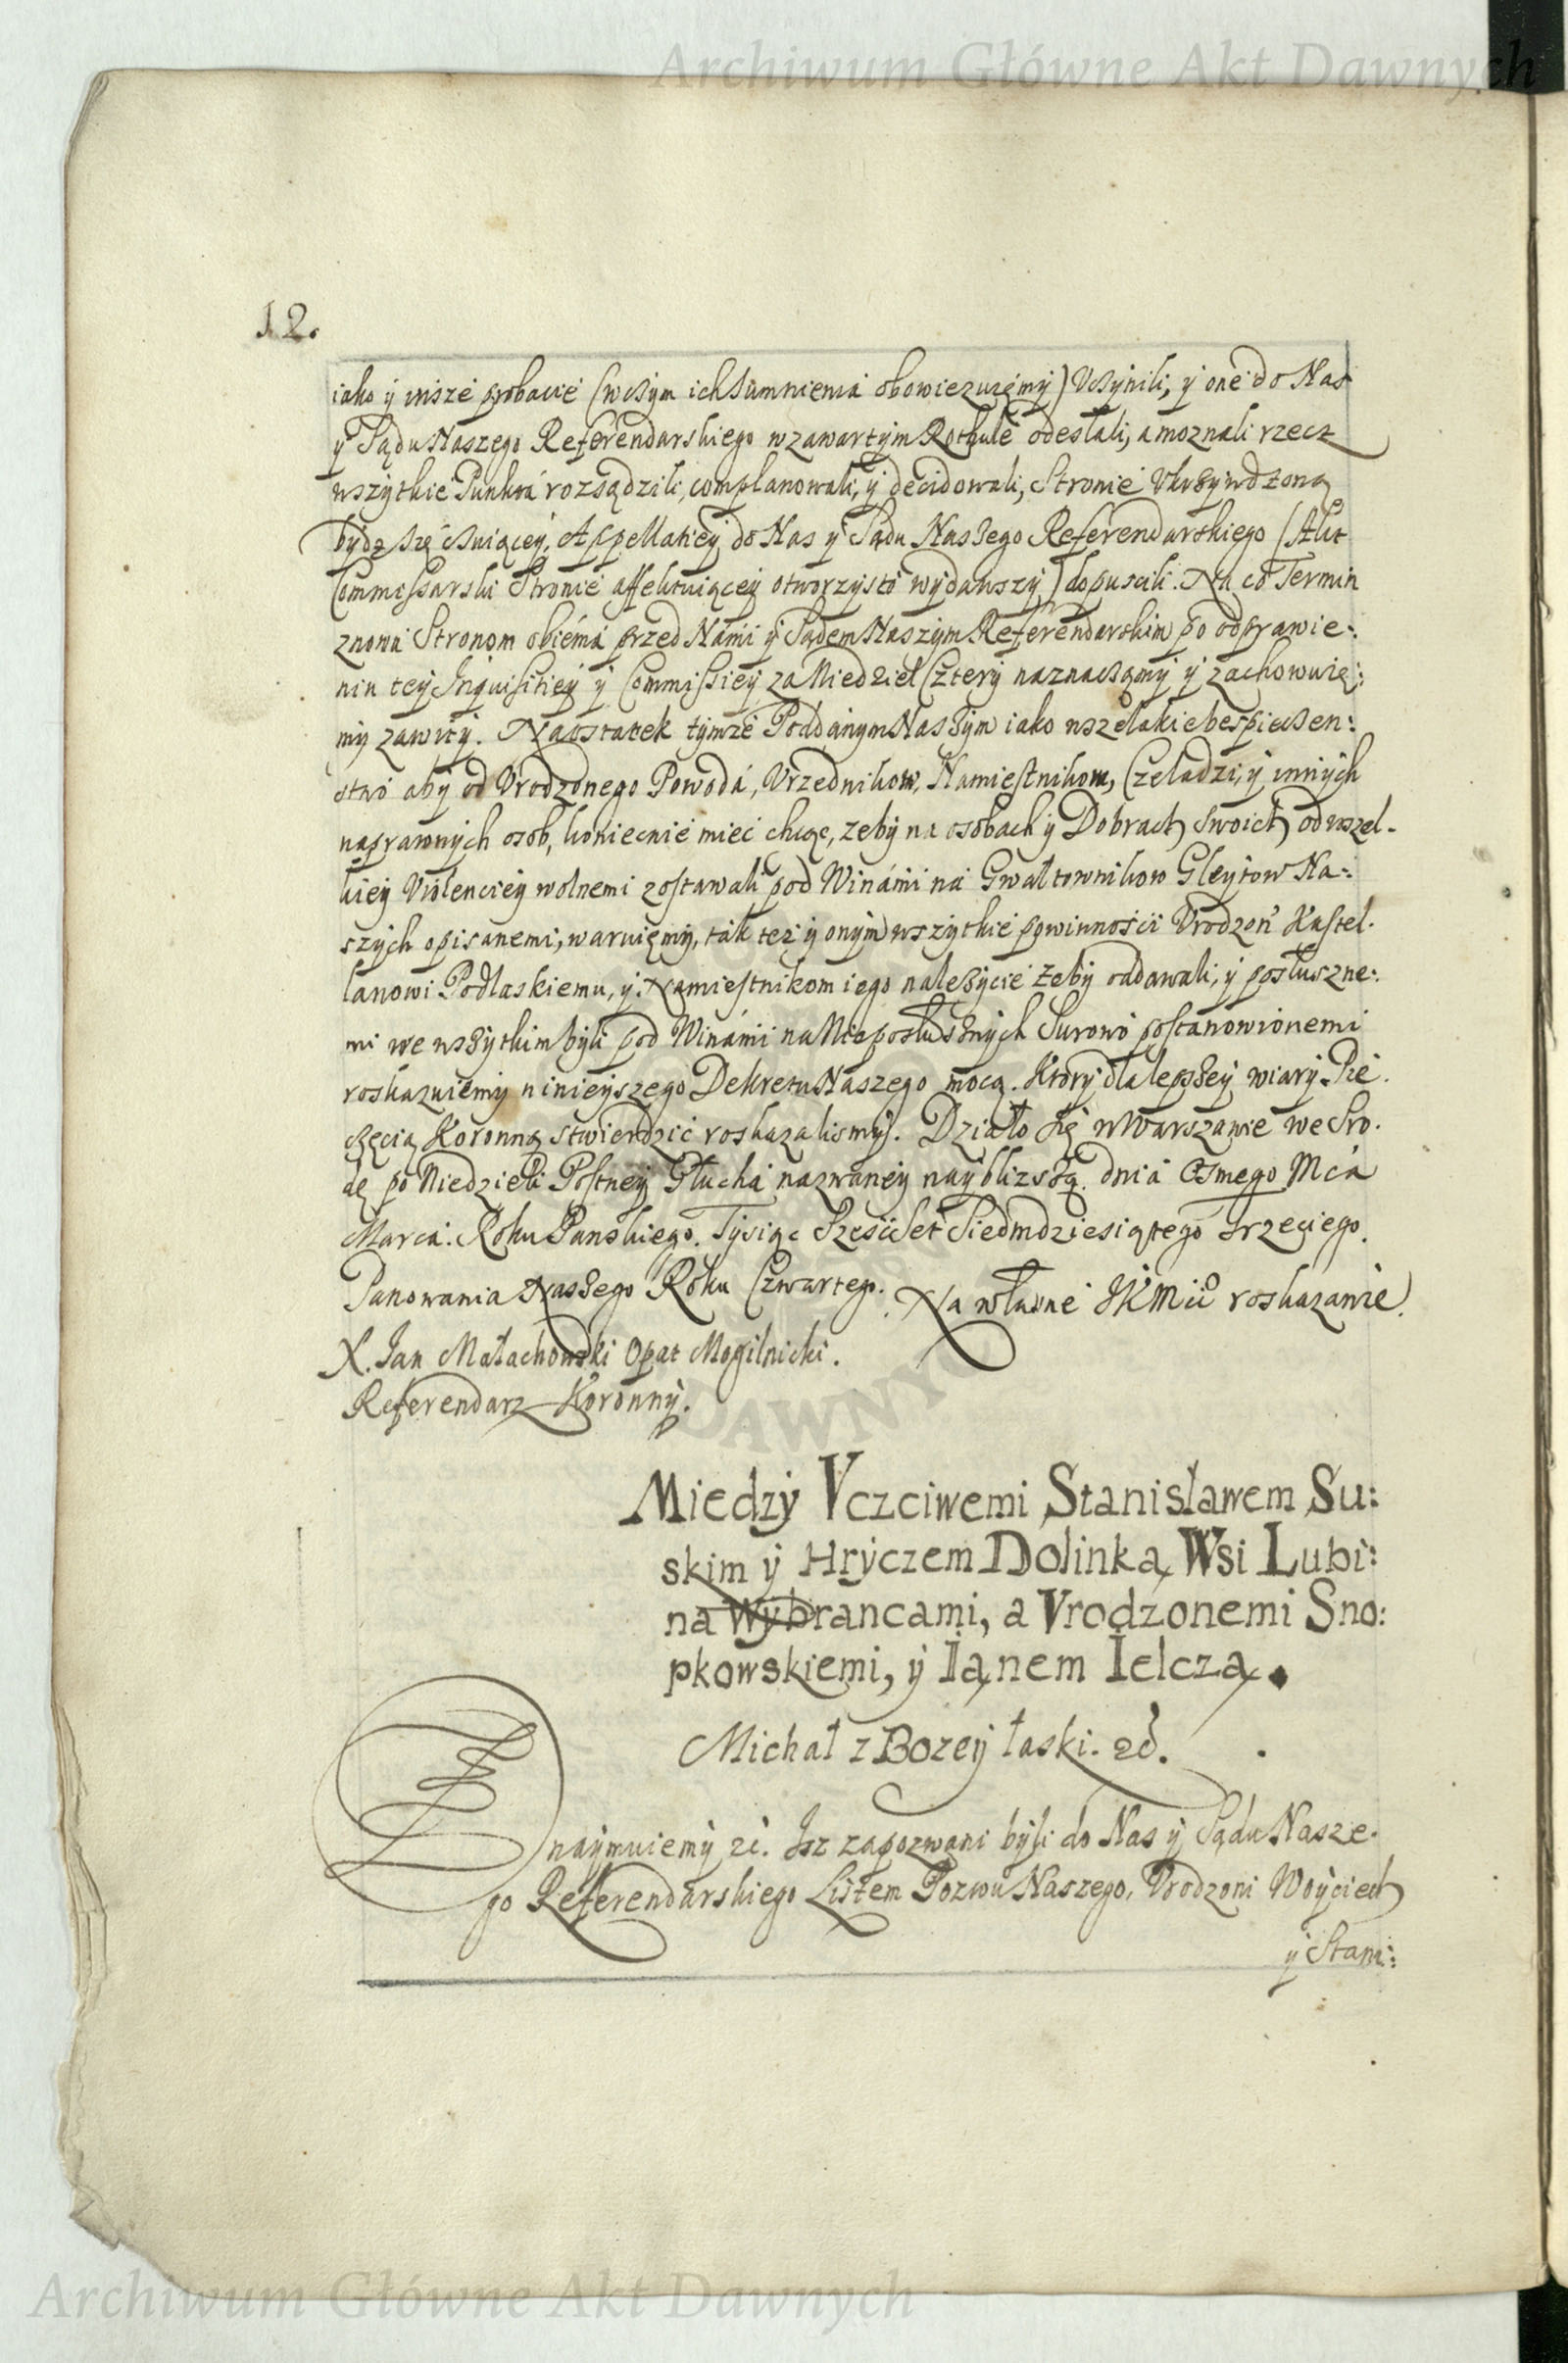 Archiwum Główne Akt Dawnych
12.
iako ÿ insze probacie (wczÿm ich Sumnienia obowiezuięmÿ) Vczÿnili, ÿ one do Nas
ÿ Sądu Naszego Referendarskiego w zawartÿm Rothule odesłali, a moznali rzecz
wszÿtkie Punkta rozsądzili, complanowali, ÿ decidowali, Stronie Vkrzÿwdzoną
bÿdz się czuiącey, Appellatieÿ do Nas ÿ Sądu Naszego Referendarskiego (Akt
Commissarski Stronie affektuiąceÿ otworzÿsto wÿdawszÿ) dopuscili. Na co Termin
znowu Stronom obiema przed Nami ÿ Sądem Naszÿm Referendarskim po odprawie:
niu teÿ Inquisitieÿ ÿ Commissieÿ za Niedziel Czterÿ naznaczamÿ ÿ zachowuię:
mÿ zawitÿ. Naostatek tÿmze Poddanÿm Naszÿm iako wszelakie bespieczen:
stwo abÿ od Vrodzonego Powoda, Vrzednikow, Namiestnikow, Czeladzi, ÿ innÿch
naprawnÿch osob, koniecznie miec chcąc, zebÿ na osobach ÿ Dobrach swoich od wszel-
kieÿ Violencieÿ wolnemi zostawali pod Winami na Gwałtownikow Gleÿtow Na:
szÿch opisanemi, waruięmÿ, tak tez ÿ onÿm wszÿtkie powinnosci Vrodzon Kastel-
lanowi Podlaskiemu, ÿ Namiestnikom iego nalezÿcie zebÿ oddawali, ÿ posłuszne:
mi we wszÿtkim bÿli pod Winami na Nieposłusznÿch Surowo postanowionemi
roskazuiemÿ ninieÿszego Dekretu Naszego mocą. Ktorÿ dla lepszeÿ wiarÿ Pie-
częcią Koronną stwierdzic roskazalismÿ. Działo się w Warszawie we Sro-
dę po Niedzieli Postneÿ Głucha nazwaneÿ naÿblizszą dnia Osmego Mca
Marca. Roku Panskiego. Tÿsiąc Szescset Siedmdziesiątego Trzeciego.
Panowania Naszego Roku Czwartego. Na własne JKMci roskazanie.
X. Jan Małachowski Opat Mogilnicki.
Referendarz Koronnÿ.
Miedzÿ Vczciwemi Stanisławem Su:
skim ÿ Hrÿczem Dolinką Wsi Lubi:
na Wÿbrancami, a Vrodzonemi Sno:
pkowskiemi, ÿ Ianem Ielczą.
Michał z Bozeÿ łaski. &c.
Znaÿmuiemÿ &c. Isz zapozwani bÿli do Nas ÿ Sądu Nasze-
go Referendarskiego Listem Pozwu Naszego, Vrodzoni Woÿciech
ÿ Stani:
Archiwum Główne Akt Dawnych